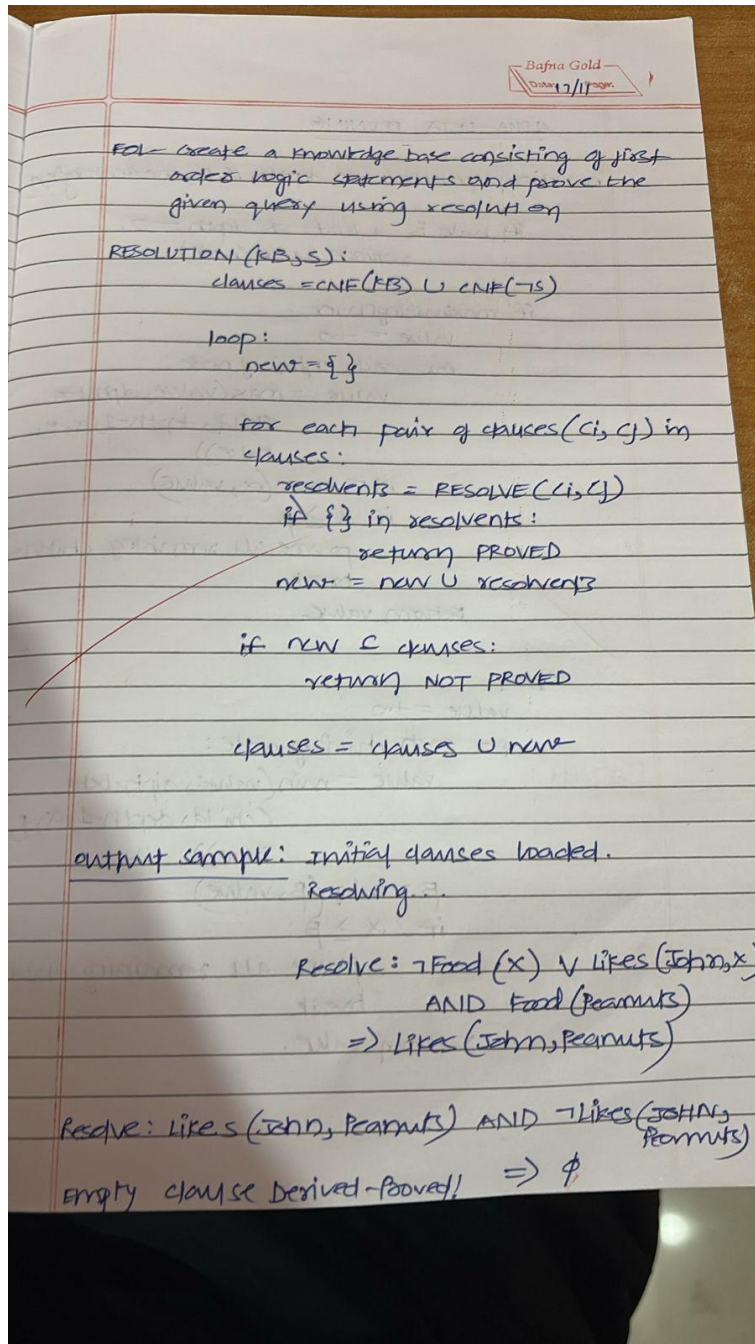 Bafna Gold
Date: 17/11 Page:
FOL- Create a knowledge base consisting of first
order logic statements and prove the
given query using resolution
RESOLUTION (KB, S):
clauses = CNF(KB) ∪ CNF(¬S)
loop:
new = { }
for each pair of clauses (Ci, Cj) in
clauses:
resolvents = RESOLVE(Ci, Cj)
if { } in resolvents:
return PROVED
new = new ∪ resolvents
if new ⊆ clauses:
return NOT PROVED
clauses = clauses ∪ new
output sample: Initial clauses loaded.
Resolving...
Resolve: ¬Food (x) ∨ Likes (John, x)
AND Food (Peanuts)
=> Likes (John, Peanuts)
Resolve: Likes (John, Peanuts) AND ¬Likes (JOHN,
Peanuts)
Empty clause Derived-Proved! => ϕ